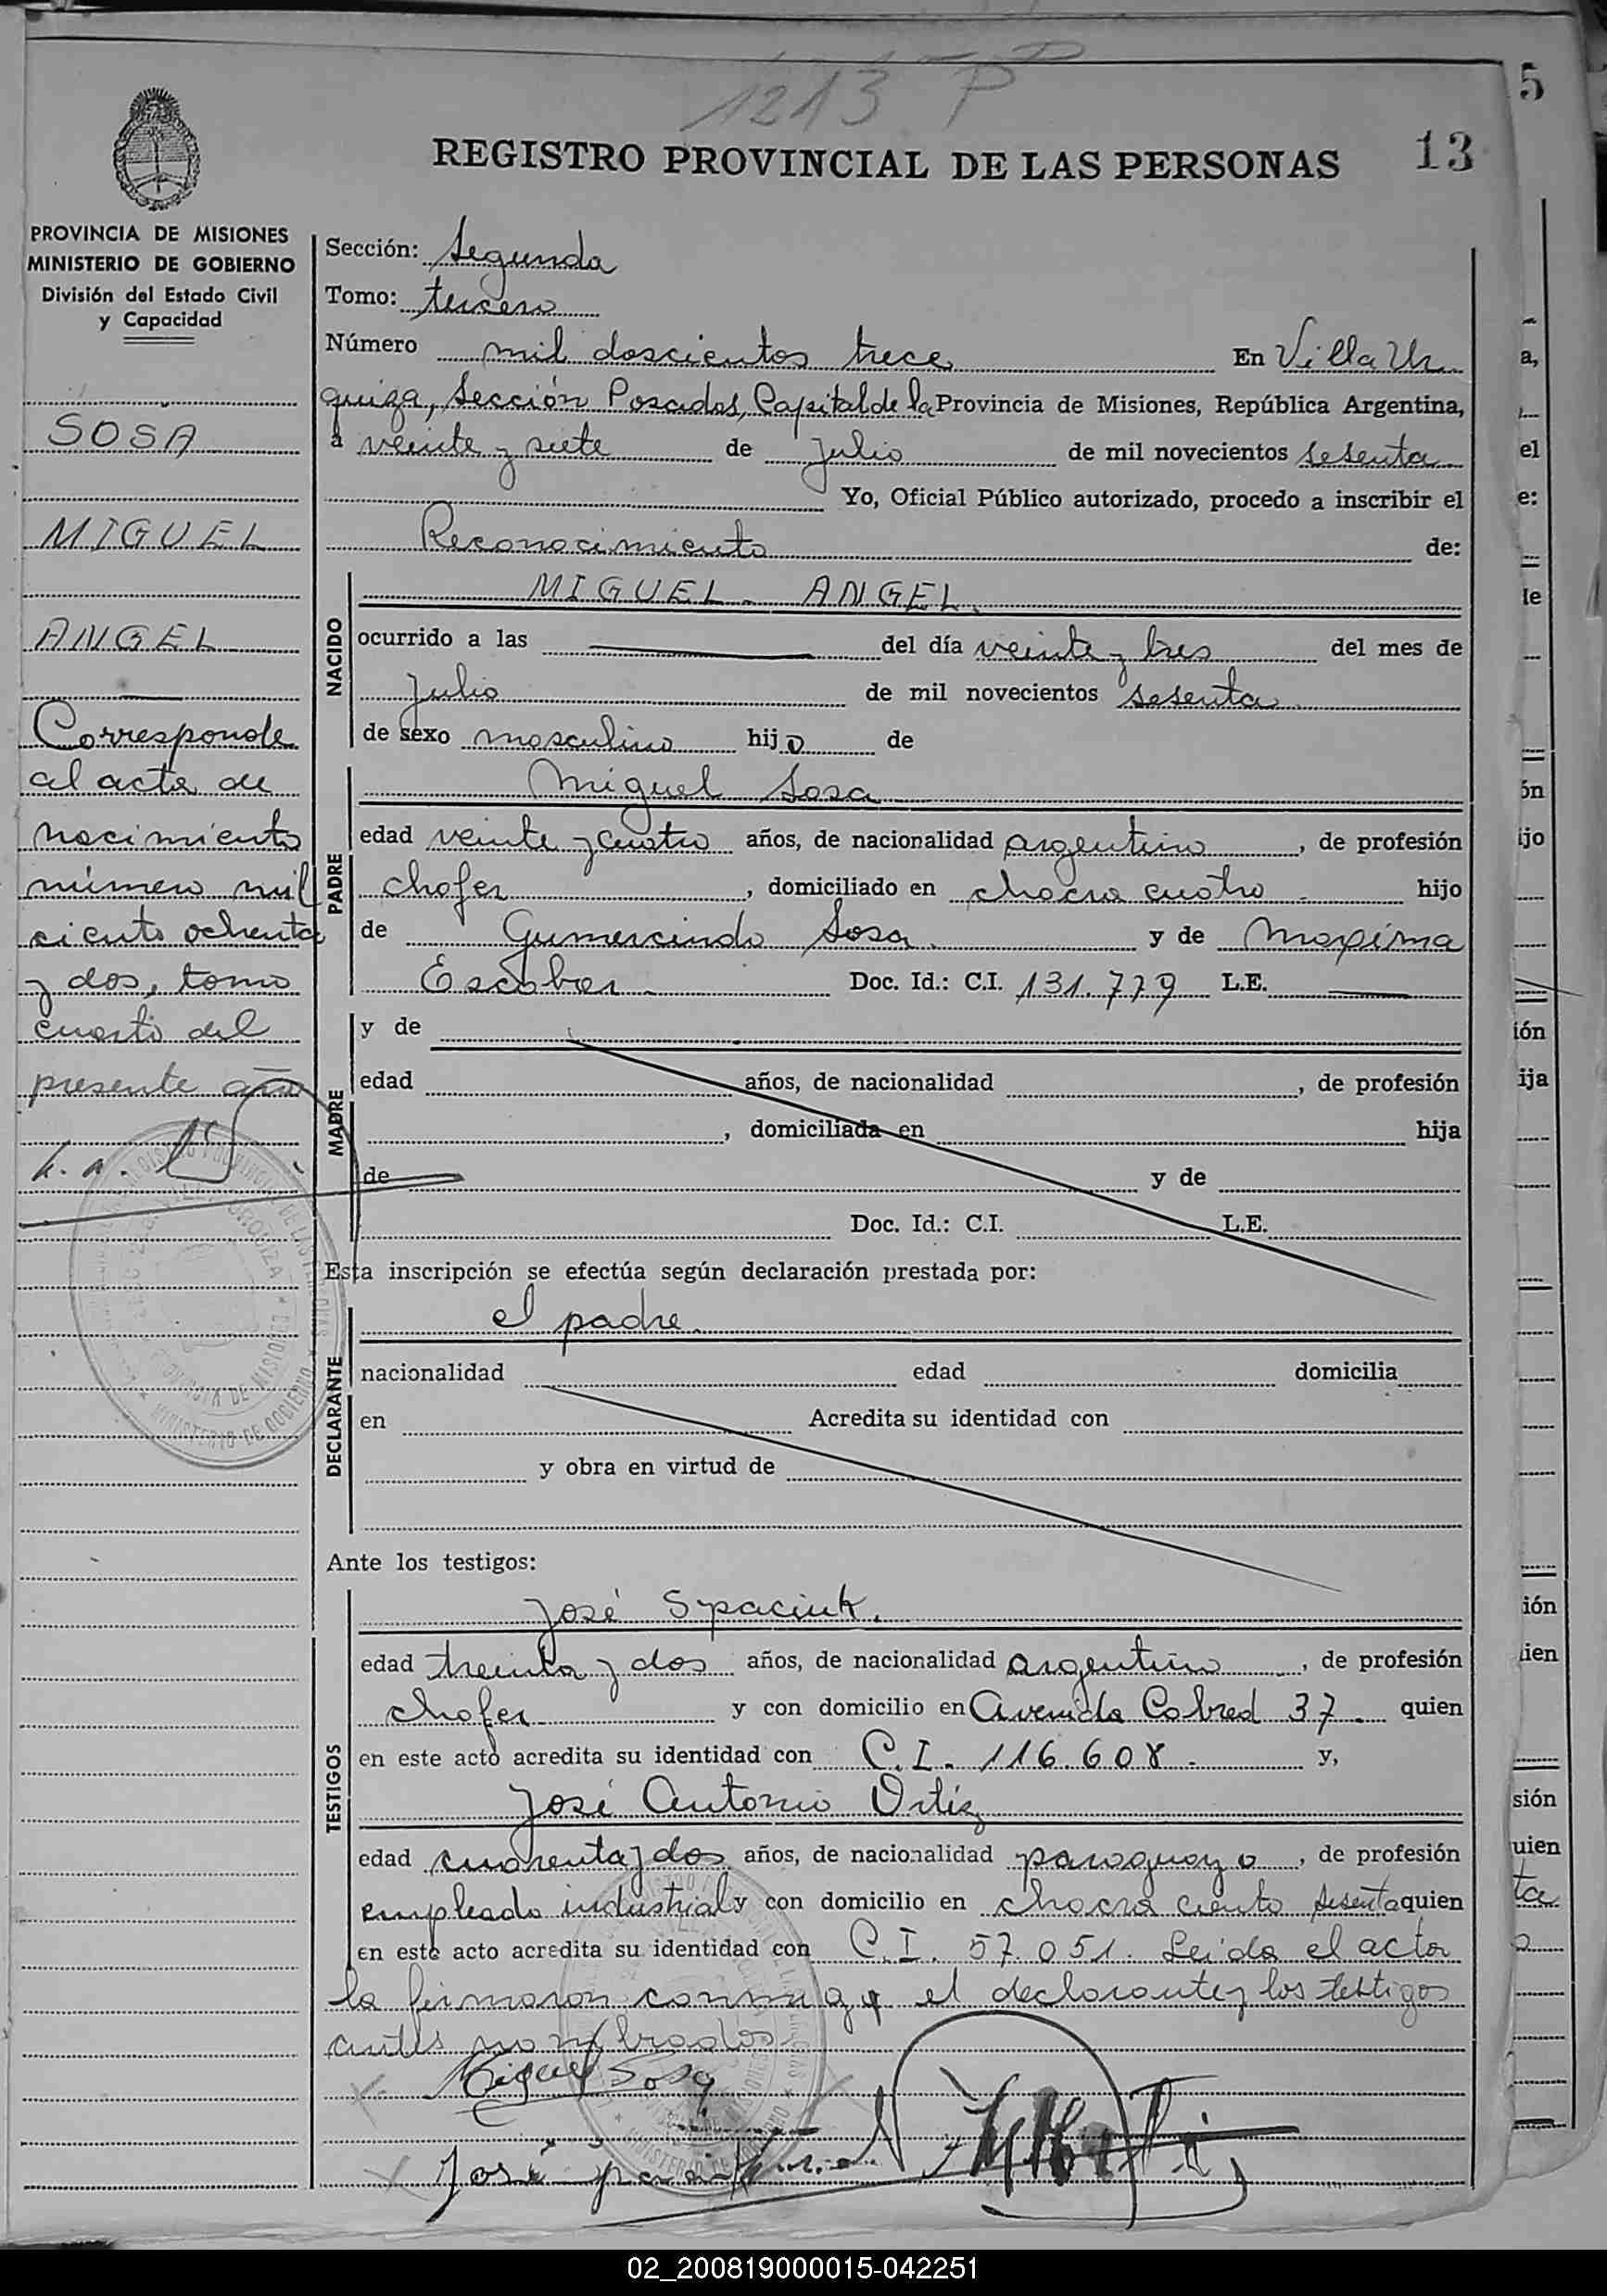 1213 P
REGISTRO PROVINCIAL DE LAS PERSONAS 13
5
PROVINCIA DE MISIONES
MINISTERIO DE GOBIERNO
División del Estado Civil
y Capacidad
SOSA
MIGUEL
ANGEL
Corresponde
al acta de
nacimiento
número mil
ciento ochenta
y dos, tomo
cuarto del
presente año
Sección: Segunda
Tomo: tercero
Número mil doscientos trece En Villa Ur
quiza, Sección Posadas, Capital de la Provincia de Misiones, República Argentina,
a veinte y siete de julio de mil novecientos sesenta
Yo, Oficial Público autorizado, procedo a inscribir el
Reconocimiento de:
NACIDO
MIGUEL ANGEL.
ocurrido a las del día veinte y tres del mes de
julio de mil novecientos sesenta
de sexo masculino hijo de
PADRE
Miguel Sosa
edad veinte y cuatro años, de nacionalidad argentino, de profesión
chofer, domiciliado en chacra cuatro hijo
de Gumercindo Sosa y de Maxima
Escobar Doc. Id.: C.I. 131.779 L.E.
MADRE
y de
edad años, de nacionalidad , de profesión
, domiciliada en hija
de y de
Doc. Id.: C.I. L.E.
Esta inscripción se efectúa según declaración prestada por:
DECLARANTE
el padre
nacionalidad edad domicilia
en Acredita su identidad con
y obra en virtud de
Ante los testigos:
TESTIGOS
José Spaciuk.
edad treinta y dos años, de nacionalidad argentino, de profesión
chofer y con domicilio en Avenida Cabred 37. quien
en este acto acredita su identidad con C.I. 116.608.- y,
José Antonio Ortiz
edad cuarenta y dos años, de nacionalidad paraguayo, de profesión
empleado industrial y con domicilio en chacra ciento sesenta quien
en este acto acredita su identidad con C.I. 57.051. Leida el acta
la firmaron conmigo el declarante y los testigos
antes nombrados
Miguel Sosa
José
02_200819000015-042251